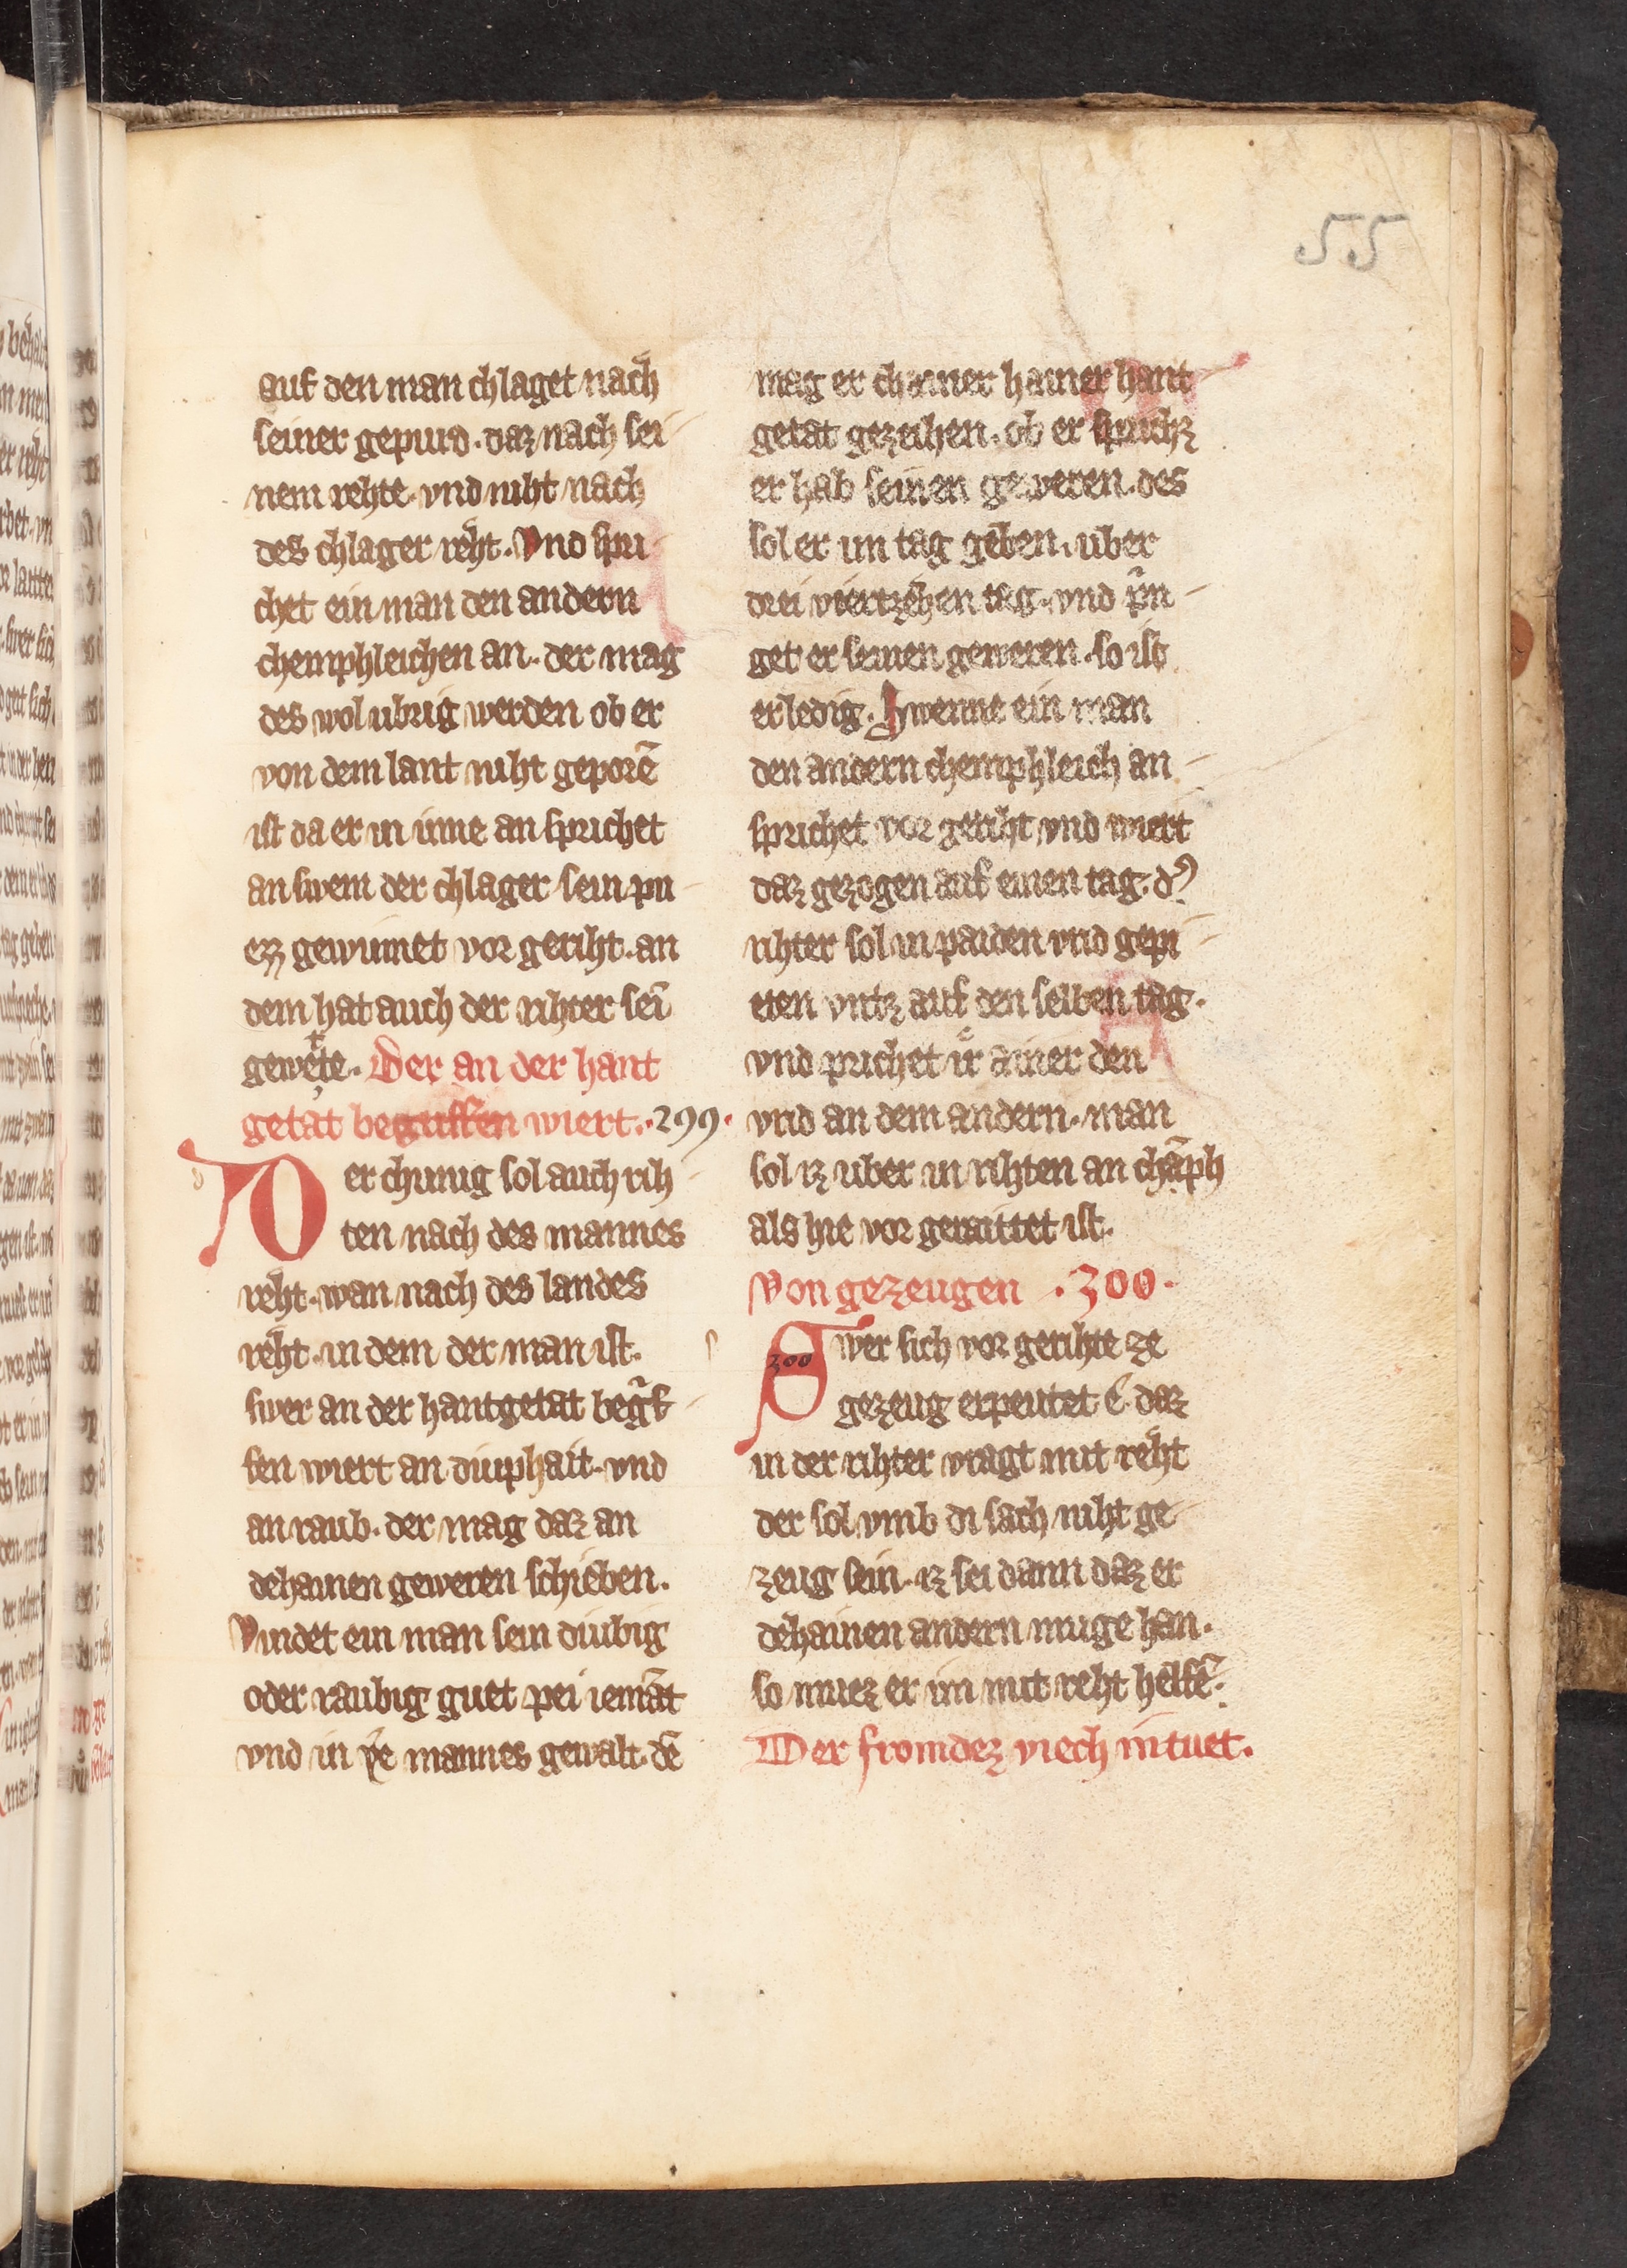 55
auf den man chlaget nach
seiner gepurd. daz nach sei
nem rehte. vnd niht nach
des chlager reht. Vnd spri
chet ein man den andern
chemphleichen an. der mag
des wol ubrig werden ob er
von dem lant niht geporē
ist da er in inne an sprichet
an swem der chlager sein pu
ezz gewinnet vor geriht. an
dem hat auch der rihter sei̅
gewete. Der an der hant
getat begriffen wiert. .299.
Der chunig sol auch rih
ten nach des mannes
reht. wan nach des landes
reht. in dem der man ist.
swer an der hantgetat begͥf
fen wiert an diuphait. vnd
an raub. der mag daz an
dehainen geweren schieben.
Vindet ein man sein diubig
oder raubig guet pei iemāt
vnd in des mannes gewalt. dē
mag er chainer hant
getat gezeihen. ob er sprichz
er hab seinen geweren. des
sol er im tag geben. uber
drei viertzehen tag. vnd pͥn
get er seinen geweren. so ist
er ledig. Swenne ein man
den andern chemphleich an
sprichet vor geriht vnd wiert
daz gezogen auf einen tag. dˀ
rihter sol in paiden vrid gepi
eten vntz auf den selben tag.
vnd prichet ir ainer den
vrid an dem andern. man
sol iz uber in rihten an chāph
als hie vor geraittet ist.
Von gezeugen .300.
300
Swer sich vor gerihte ze
gezeug erpeutet e. daz
in der rihter vragt mit reht
der sol vmb di sach niht ge
zeug sein. iz sei dann daz er
dehainen andern muge han.
so muez er im mit reht helfē.
Der fromdez viech in tuet.